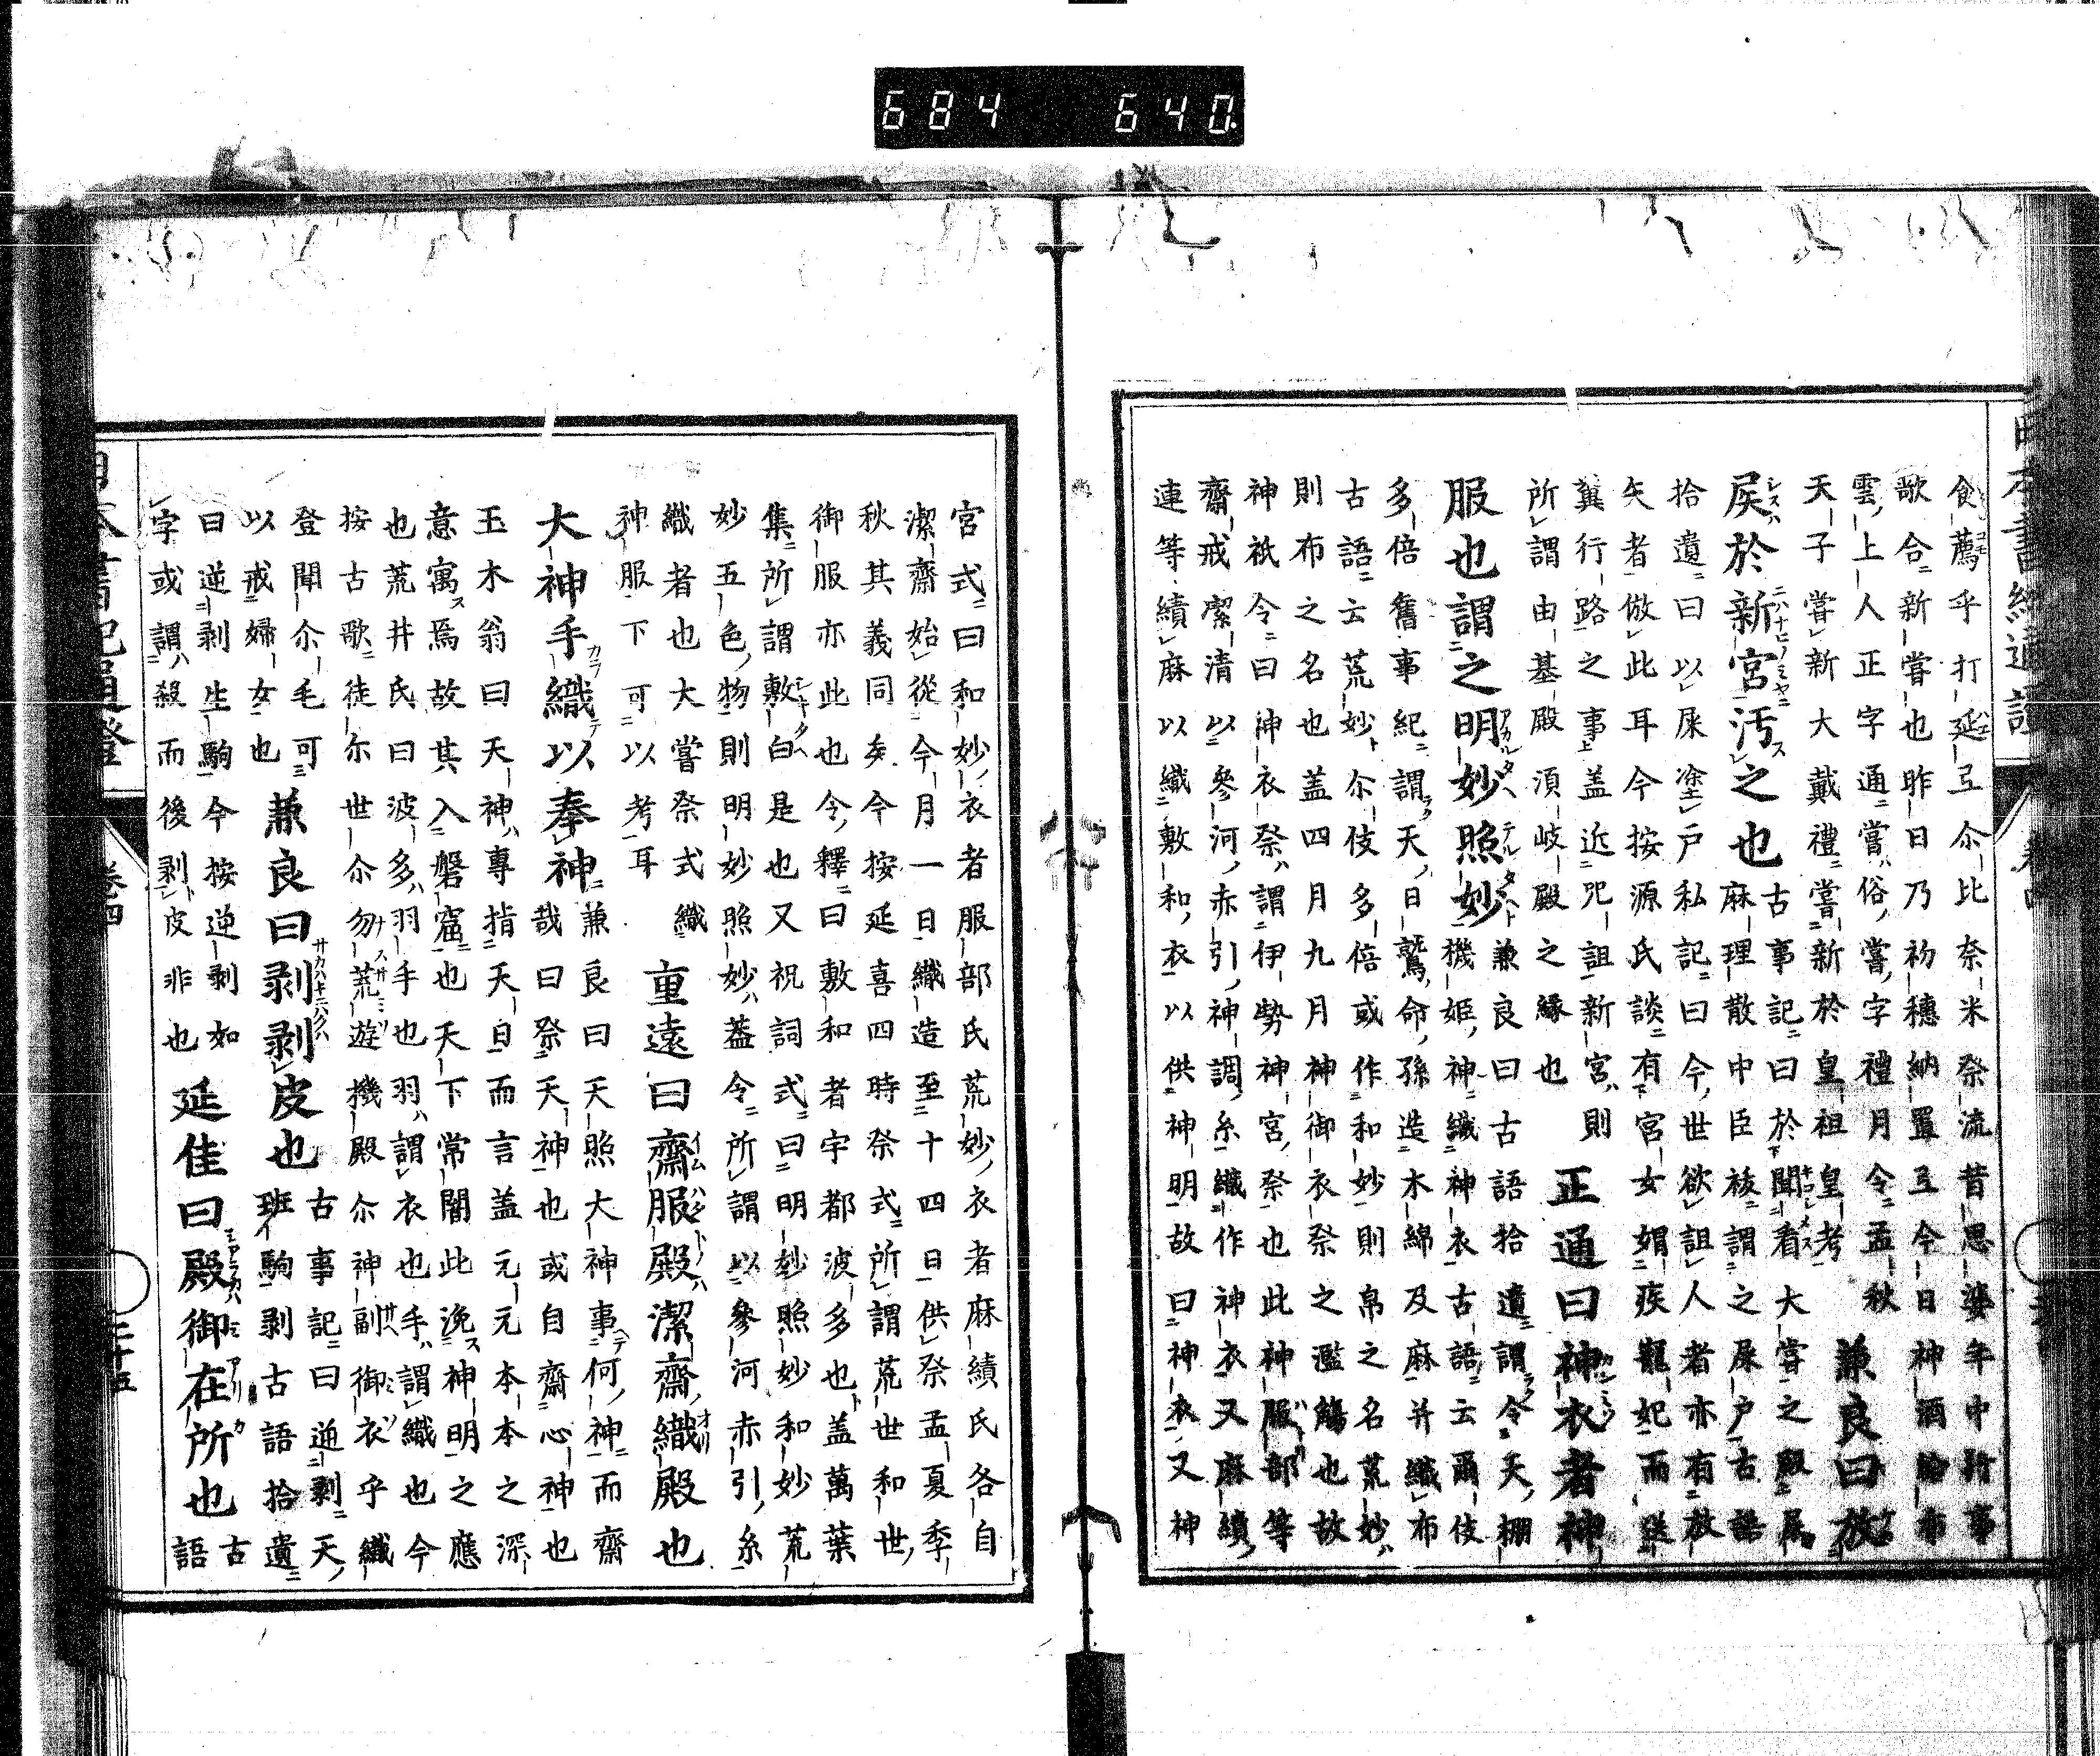 食薦乎打延互尒比奈米祭流昔思婆年中行事
歌合新嘗也昨日乃初穗納置互今日神酒給布
雲上人正字通嘗俗嘗字禮月令孟秋
天子嘗新大戴禮嘗新於皇祖皇考
兼良曰放
屎於新宮汚之也
古事記曰於聞看大嘗之殿屎
麻理散中臣祓謂之屎戸古語
拾遺曰以屎塗戸私記曰今世欲詛人者亦有放
矢者倣此耳今按源氏談有宮女媢疾寵妃而送
糞行路之事上盖近咒詛新宮則
所謂由基殿湏岐殿之縁也
正通曰神衣者神
服也謂之明妙照妙
兼良曰古語拾遺謂令天棚
機姫神織神衣古語云爾伎
多倍舊事紀謂天日鷲命孫造木綿及麻并織布
古語云荒妙尒伎多倍或作和妙則帛之名荒妙
則布之名也盖四月九月神御衣祭之濫觴也故
神祇令曰神衣祭謂伊勢神宮祭也此神服部等
齋戒潔清以參河赤引神調糸織作神衣又麻績
連等績麻以織敷和衣以供神明故曰神衣又神
宮式曰和妙衣者服部氏荒妙衣者麻績氏各自
潔齋始從今月一日織造至十四日供祭孟夏季
秋其義同矣今按延喜四時祭式所謂荒世和世
御服亦此也令釋曰敷和者宇都波多也盖萬葉
集所謂敷白是也又祝詞式曰明妙照妙和妙荒
妙五色物則明妙照妙盖令所謂以參河赤引糸
織者也大嘗祭式織
神服下可以考耳
重遠曰齋服殿潔齋織殿也
大神手織以奉神哉
兼良曰天照大神事何神而齋
曰祭天神也或自齋心神也
玉木翁曰天神專指天日而言盖元元本本之深
意寓焉故其入磐窟也天下常闇此浼神明之應
也荒井氏曰波多羽手也羽謂衣也手謂織也今
按古歌徒尓世尒勿荒遊機殿尒神副御衣乎織
登聞尒毛可
以戒婦女也
兼良曰剥剥皮也
古事記曰逆剥天
班駒剥古語拾遺
曰逆剥生駒今按逆剥如
字或謂殺而後剥皮非也
延佳曰殿御在所也
古
語